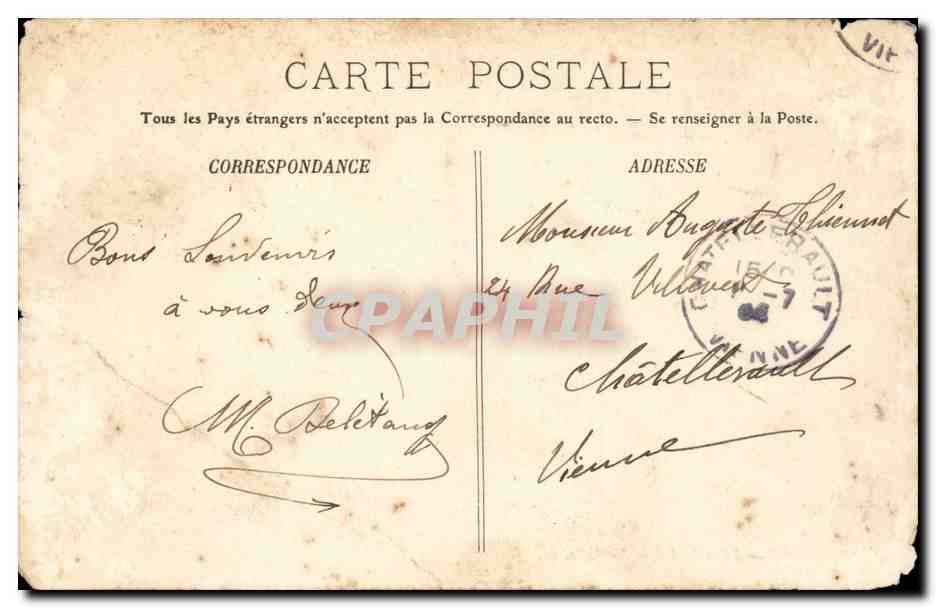 CARTE POSTALE
Tous les Pays étrangers n'acceptent pas la Correspondance au recto. — Se renseigner à la Poste.
CORRESPONDANCE
Bons Souvenirs
à vous deux
M. Belétang
ADRESSE
Monsieur Auguste Thiennet
24 Rue Villevert
Châtellerault
Vienne
CHATELLERAULT
15
-7
VIENNE
VIE
CPAPHIL